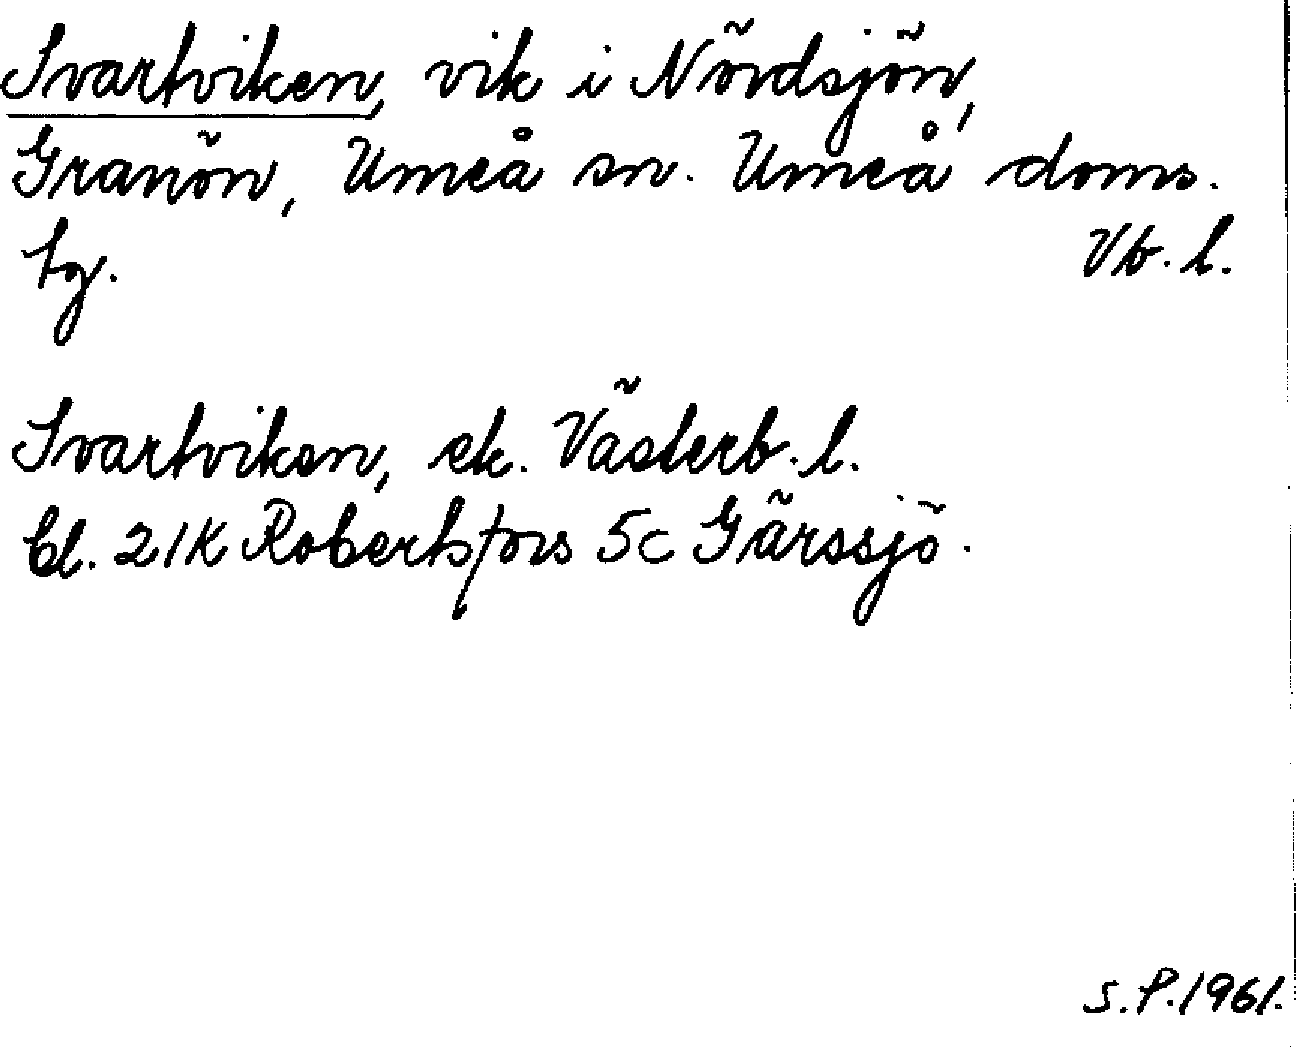 Svartviken, vik i Nördsjön,
Granön, Umeå sn. Umeå doms.
tg. Vb. l.
Svartviken, ek. Västerb. l.
bl. 21K Robertsfors 5c Gärssjö.
S.P. 1961.